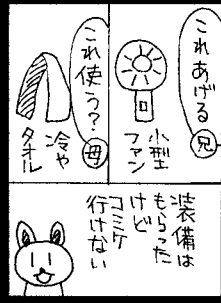 これあげる
兄
小型
ファン
これ使う？
母
冷や
タオル
装備は
もらった
けど
コミケ
行けない